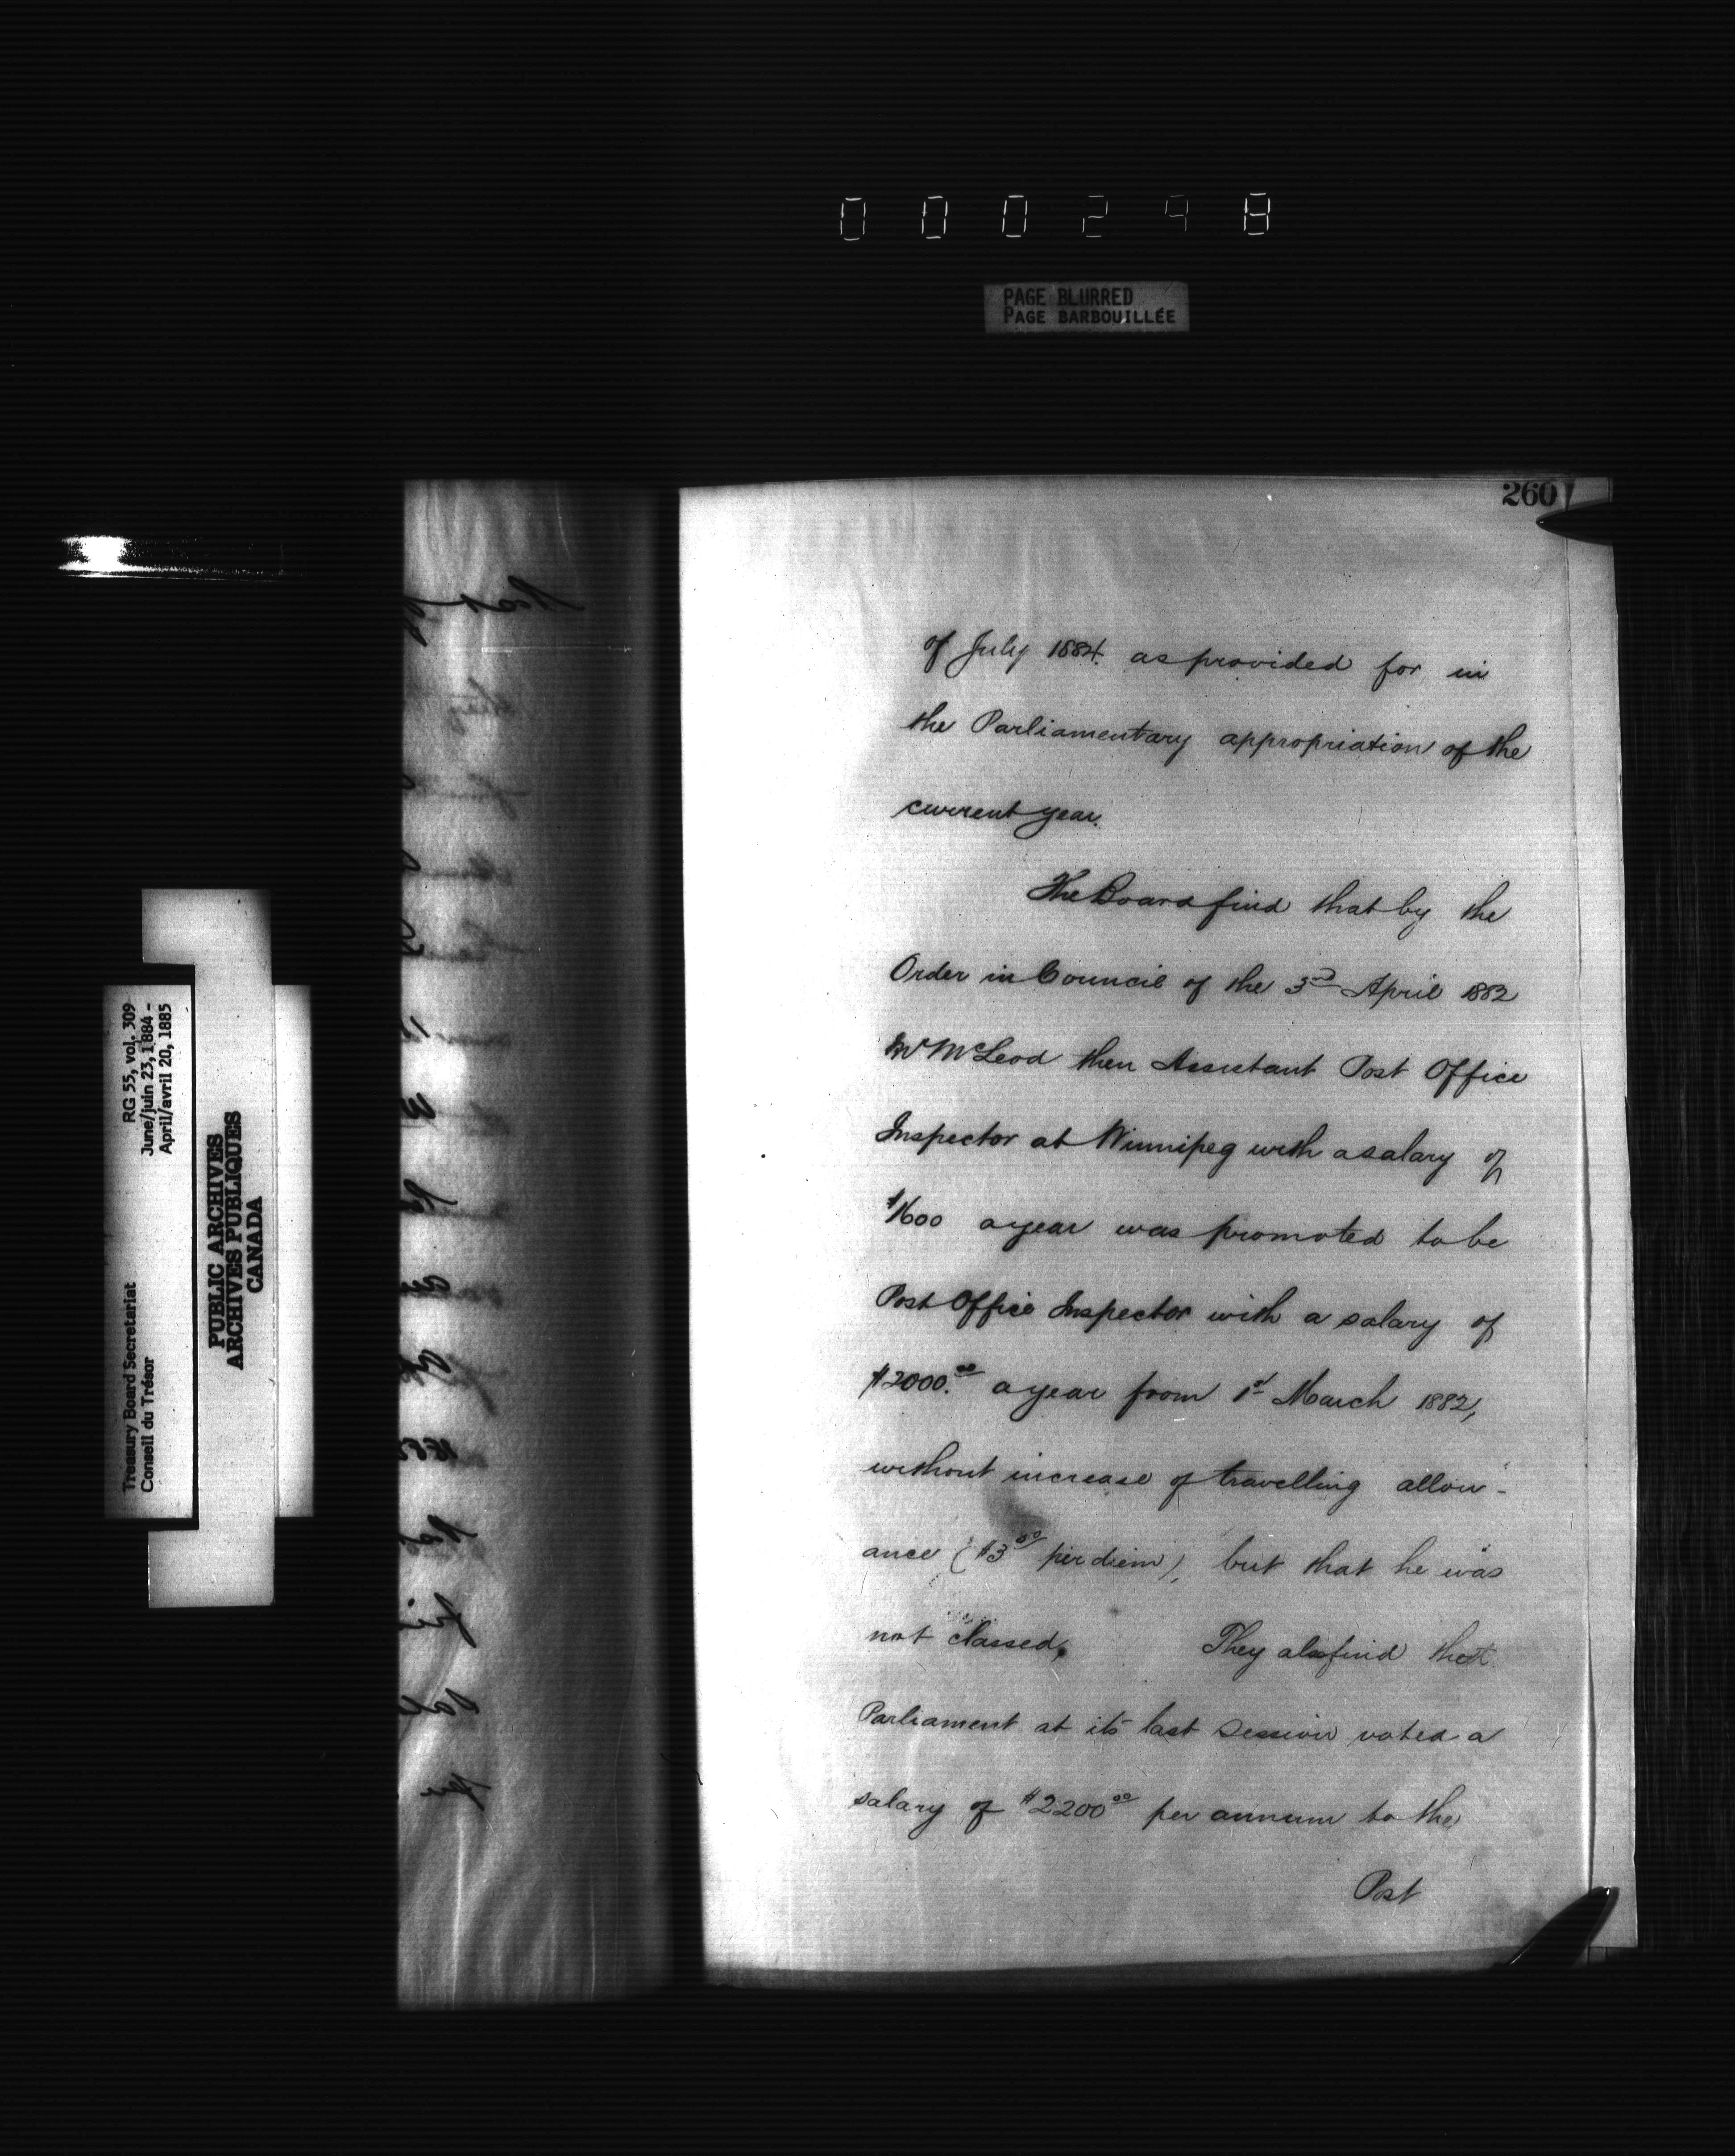 000298
PAGE BLURRED
PAGE BARBOUILLÉE
260
RG 55, vol. 309
June/juin 23, 1884 -
April/avril 20, 1885
Treasury Board Secretariat
Conseil du Trésor
PUBLIC ARCHIVES
ARCHIVES PUBLIQUES
CANADA
of July 1884. as provided for in
the Parliamentary appropriation of the
current year.
The Board find that by the
Order in Council of the 3rd April 1882
Mr McLeod then Assistant Post Office
Inspector at Winnipeg with a salary of
$1600 a year was promoted to be
Post Office Inspector with a salary of
$2000.00 a year from 1st March 1882,
without increase of travelling allow-
ance ($3 00 per diem), but that he was
not classed. They also find that
Parliament at its last session voted a
salary of $2200 00 per annum to the
Post